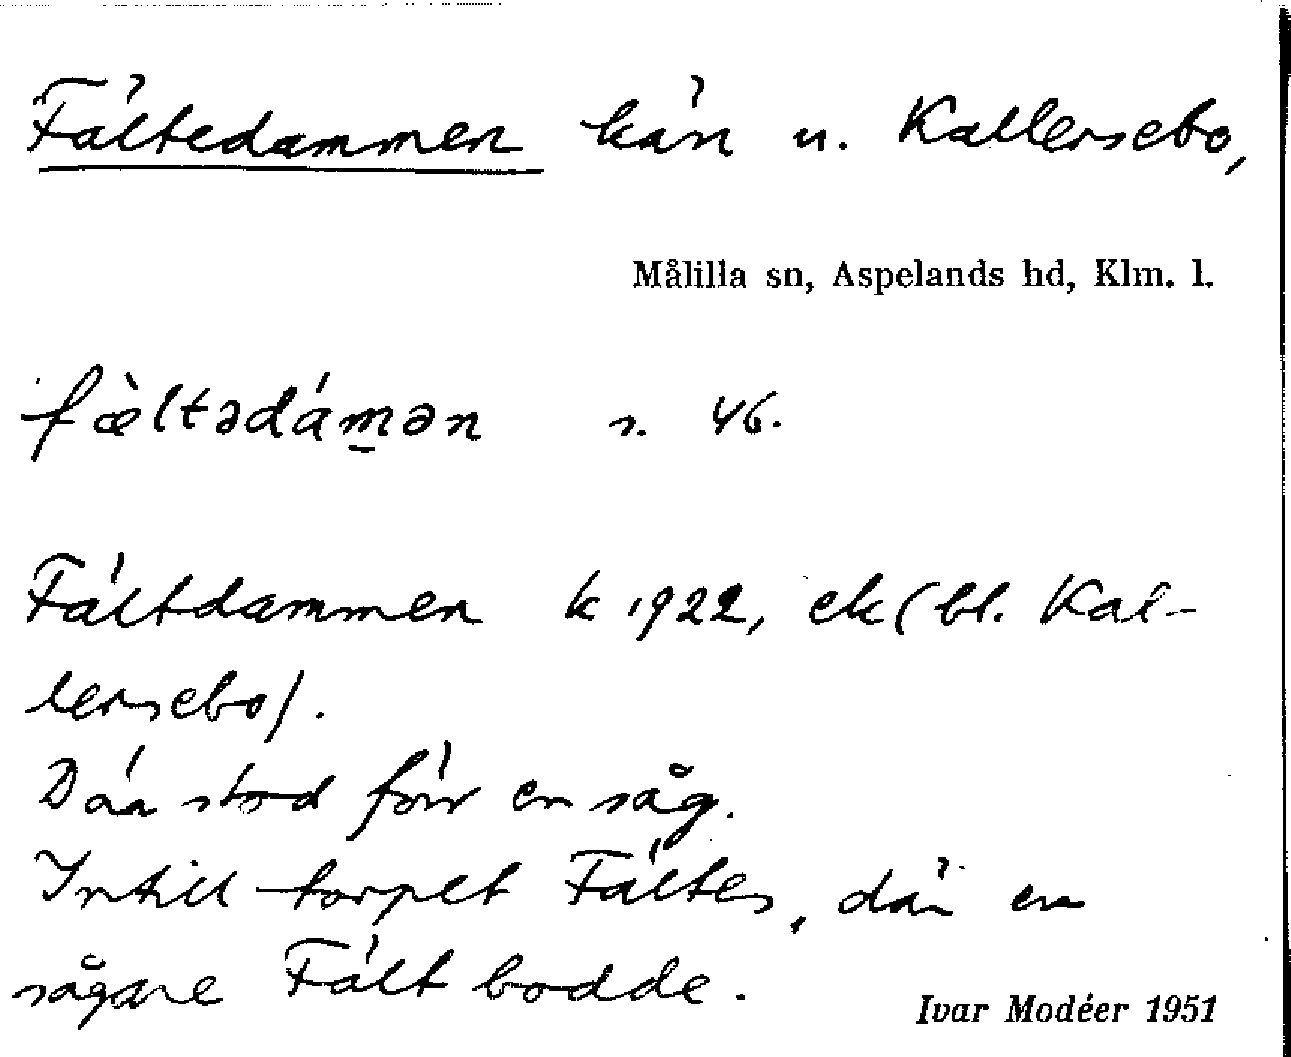 Fältedammen kärr u. Kallersebo,
Målilla sn, Aspelands hd, Klm. l.
fæ̀ltədám̲ən s. 46.
Fältdammen k 1922, ek (bl. Kal-
lersebo).
Där stod förr en såg.
Intill torpet Fältes, där en
sågare Fält bodde.
Ivar Modéer 1951